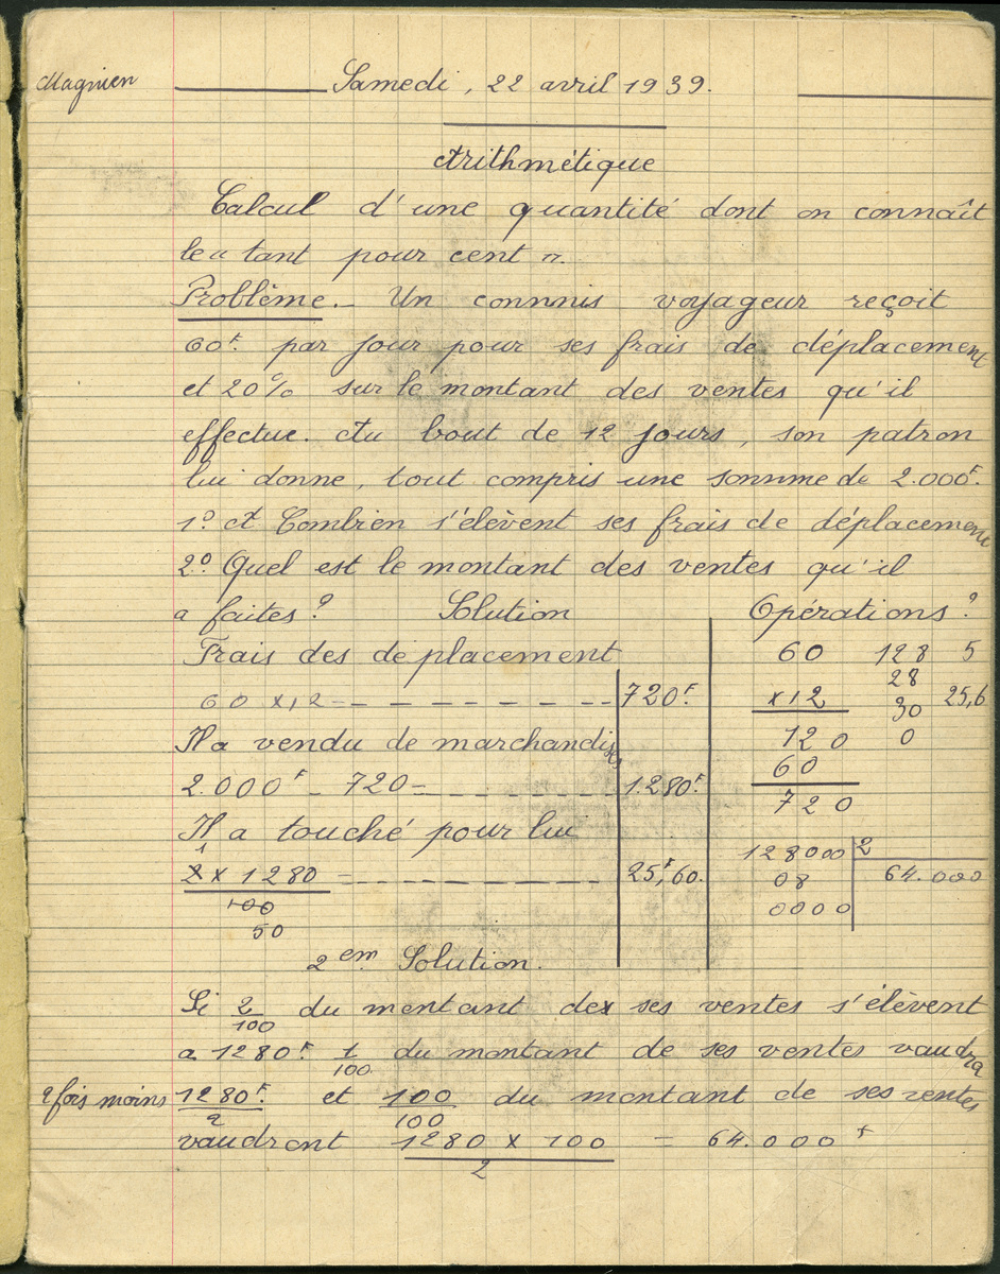 Magnien
Samedi, 22 avril 1939.
Arithmétique
Calcul d'une quantité dont on connaît
le « tant pour cent ».
Problème. – Un commis voyageur reçoit
60F. par jour pour ses frais de déplacement
et 20% sur le montant des ventes qu'il
effectue. Au bout de 12 jours, son patron
lui donne, tout compris une somme de 2.000F.
1º A Combien s'élèvent ses frais de déplacement
2º Quel est le montant des ventes qu'il
a faites? Solution Opérations?
Frais des deplacement 60 128 5
28
60 x 12 = 720F. x 12 30 25,6
Il a vendu de marchandises 120 0
60
2.000F - 720 = 1.280F. 720
Il a touché pour lui
1 128000 2
2 x 1280 = 25F,60. 08 64.000
100 0000
50
2em Solution.
Si 2/100 du montant dex ses ventes s'élèvent
a 1280F. 1/100 du montant de ses ventes vaudra
2 fois moins 1280F./2 et 100/100 du montant de ses ventes
vaudront 1280 x 100 / 2 = 64.000F